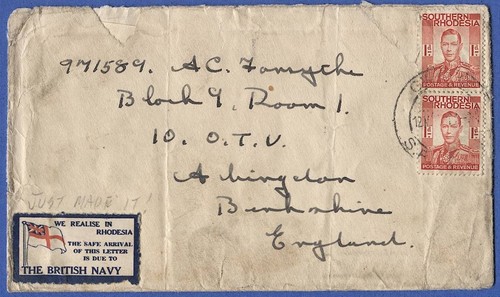 SOUTHERN
RHODESIA
1D 1D
POSTAGE & REVENUE
SOUTHERN
RHODESIA
1D 1D
POSTAGE & REVENUE
971589. AC. Forsythe
Block 9, Room 1.
10. O.T.U.
Abingdon
Berkshire
England.
JUST MADE IT!
WE REALISE IN
RHODESIA
THE SAFE ARRIVAL
OF THIS LETTER
IS DUE TO
THE BRITISH NAVY